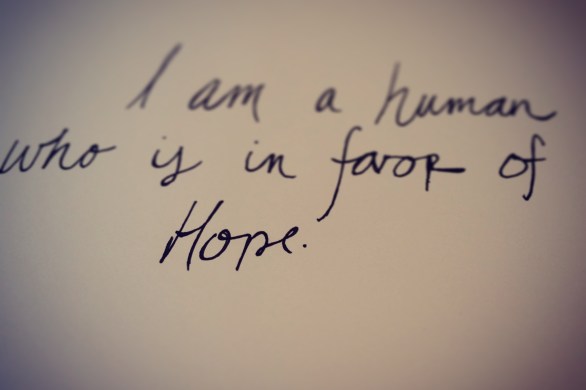 I am a human
who is in favor of
Hope.